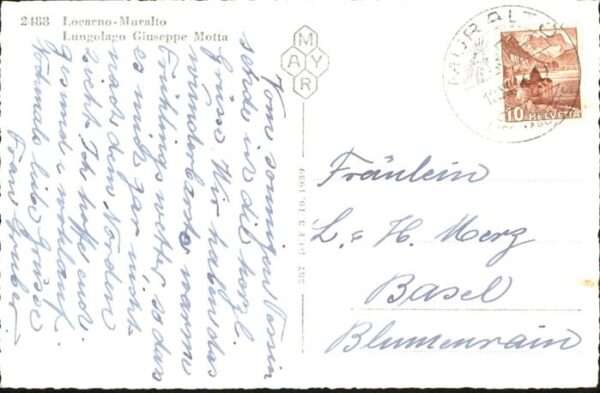 2488 Locarno-Muralto
Lungolago Giuseppe Motta
MAYR
Vom sonnigen Tessin
sende ich die herzl.
Grüsse. Wir haben das
wunderbarste warme
Frühlingswetter, so dass
es mich gar nicht
nach dem Norden
zieht. Ich hoffe euch
gesund & wohlauf.
Nochmals liebe Grüsse
Frau
MURALTO
10 HELVETIA
Fräulein
L. & H. Merz
Basel
Blumenrain